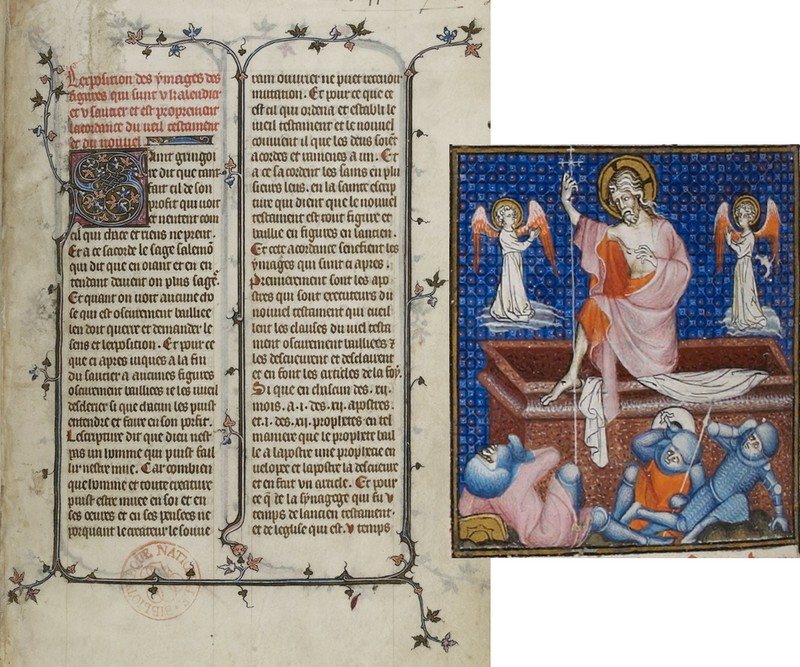 Lexposition des ymages des
figures qui sunt u kalendrier
et u sautier et est proprement
lacordance du ueil testament
et du nouuel
Saint gringoi
re dit que tant
fait cil de son
profit qui voit
et nentent com
cil qui chace et riens ne prent.
Et a ce sacorde le sage salemon
qui dit que en oiant et en en
tendant deuient on plus sage.
Et quant on uoit aucune cho
se qui est oscurement bailliee
len doit querre et demander le
sens et lexposition. Et pour ce
que ci apres iusques a la fin
du sautier a aucunes figures
oscurement bailliees ie les vueil
desclerier si que chacun les puist
entendre et faire en son profit.
Lescripture dit que dieu nest
pas un homme qui puist fail
lir nestre mue. Car combien
que homme et toute creature
puist estre muee en soi et en
ses oeures et en ses pensees ne
porquant le createur le souue
rain ouurier ne puet receuoir
mutation. Et pour ce que ce
est cil qui ordena et establi le
uieil testament et le nouuel
conuient il que les deus soient
acordes et ramenes a un. Et
a ce sacordent les sains en plu
sieurs leus. en la sainte escrip
ture qui dient que le nouuel
testament est tout figure et
baillie en figures en lancien.
Et cete acordance senefient les
ymages qui sunt ci apres.
Premierement sont les apo
stres qui sont executeurs du
nouuel testament qui cueil
lent les clauses du uiel testa
ment oscurement bailliees &
les descueurent et desclairent
et en font les articles de la foy.
Si que en chascun des .xii.
mois. a .i. des .xii. apostres.
et .i. des .xii. prophetes en tel
maniere que le prophete bail
le a lapostre une prophecie en
uelopee et lapostre la descueure
et en fait un article. Et pour
ce que de la synagoge qui fu u
temps de lancien testament.
et de leglise qui est. u temps